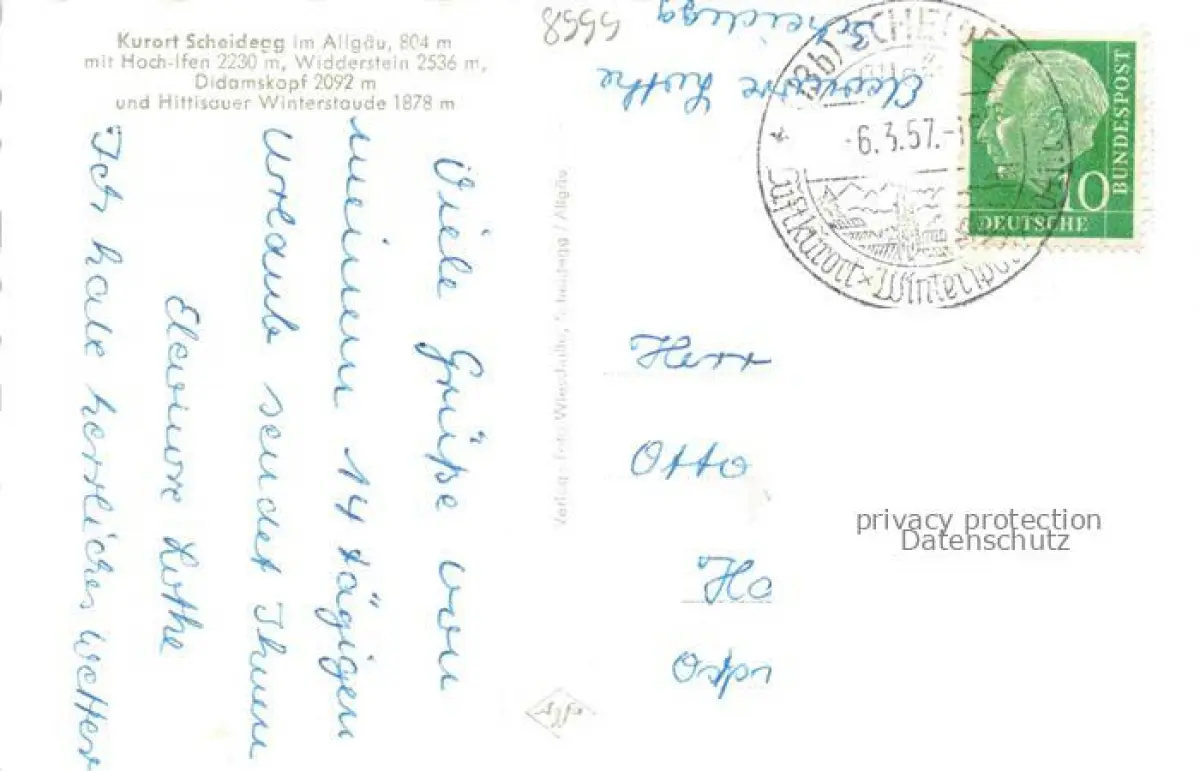 Kurort Scheidegg im Allgäu, 804 m
mit Hoch-Ifen 2230 m, Widderstein 2536 m,
Didamskopf 2092 m
und Hittisauer Winterstaude 1878 m
Viele Grüße von
meinem 14 tägigen
Urlaub sendet Ihnen
Eleonore Luthe
Ich habe herrliches Wetter
5558
Scheidegg
Eleonore Luthe
(13b) SCHEIDEGG
-6.3.57.-18
Luftkurort × Winterspo
10
DEUTSCHE
BUNDESPOST
Verlag: Scheidegg / Allgäu
Herr
Otto
Ho
privacy protection
Datenschutz